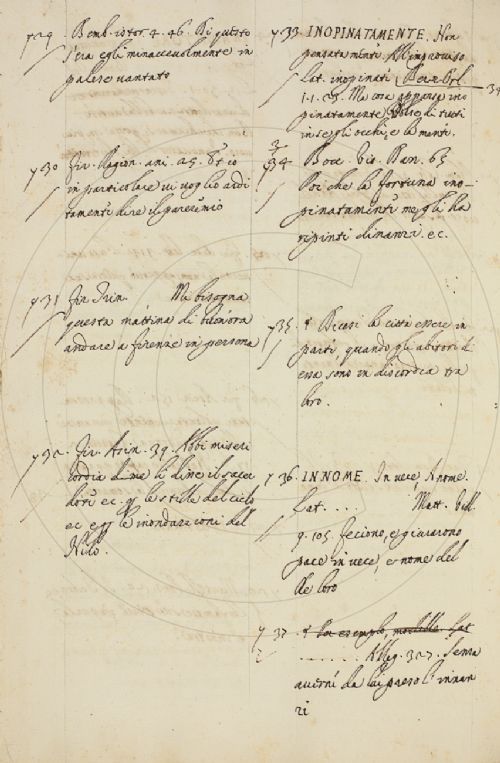 729 Bemb. stor. 4. 46. Di questo
s'era egli minaccevolmente in
palese vantato
730 Fir. Ragion. ani. 25. Et io
in particolare vi voglio ardi
tamente dire il parer mio
731 Fir. Trin. Mi bisogna
questa mattina di buon'ora
andare a firenze in persona
732. Fir. Asin. 39. Abbi miseri
cordia
dori ec. per le stille del cielo
ec e per le inondazioni del
Nilo.
733 INOPINATAMENTE. Non
pensatamente. All'improviso
Lat. inopinatè. Ber. Orl.
1. 1. 23. Ma cosa apparse ino
pinatamente
in se gli occhi, e la mente.
734 Bocc. vis. Pan. 65
Poi che la fortuna ino-
pinatamente me gli ha
ripinti dinanzi. ec.
735. Dicesi la città essere in
parti, quando gli abitori d'
essa sono in discordia tra
loro.
736. IN NOME. In vece, A nome.
Lat. . . . . Matt. Vill.
9. 105. feciono, e giurarono
pace in vece, e nome del
de loro
737. per esempio, Lat
. . . . . . . Alleg. 327. Senza
averne da lui preso l'innan
zi